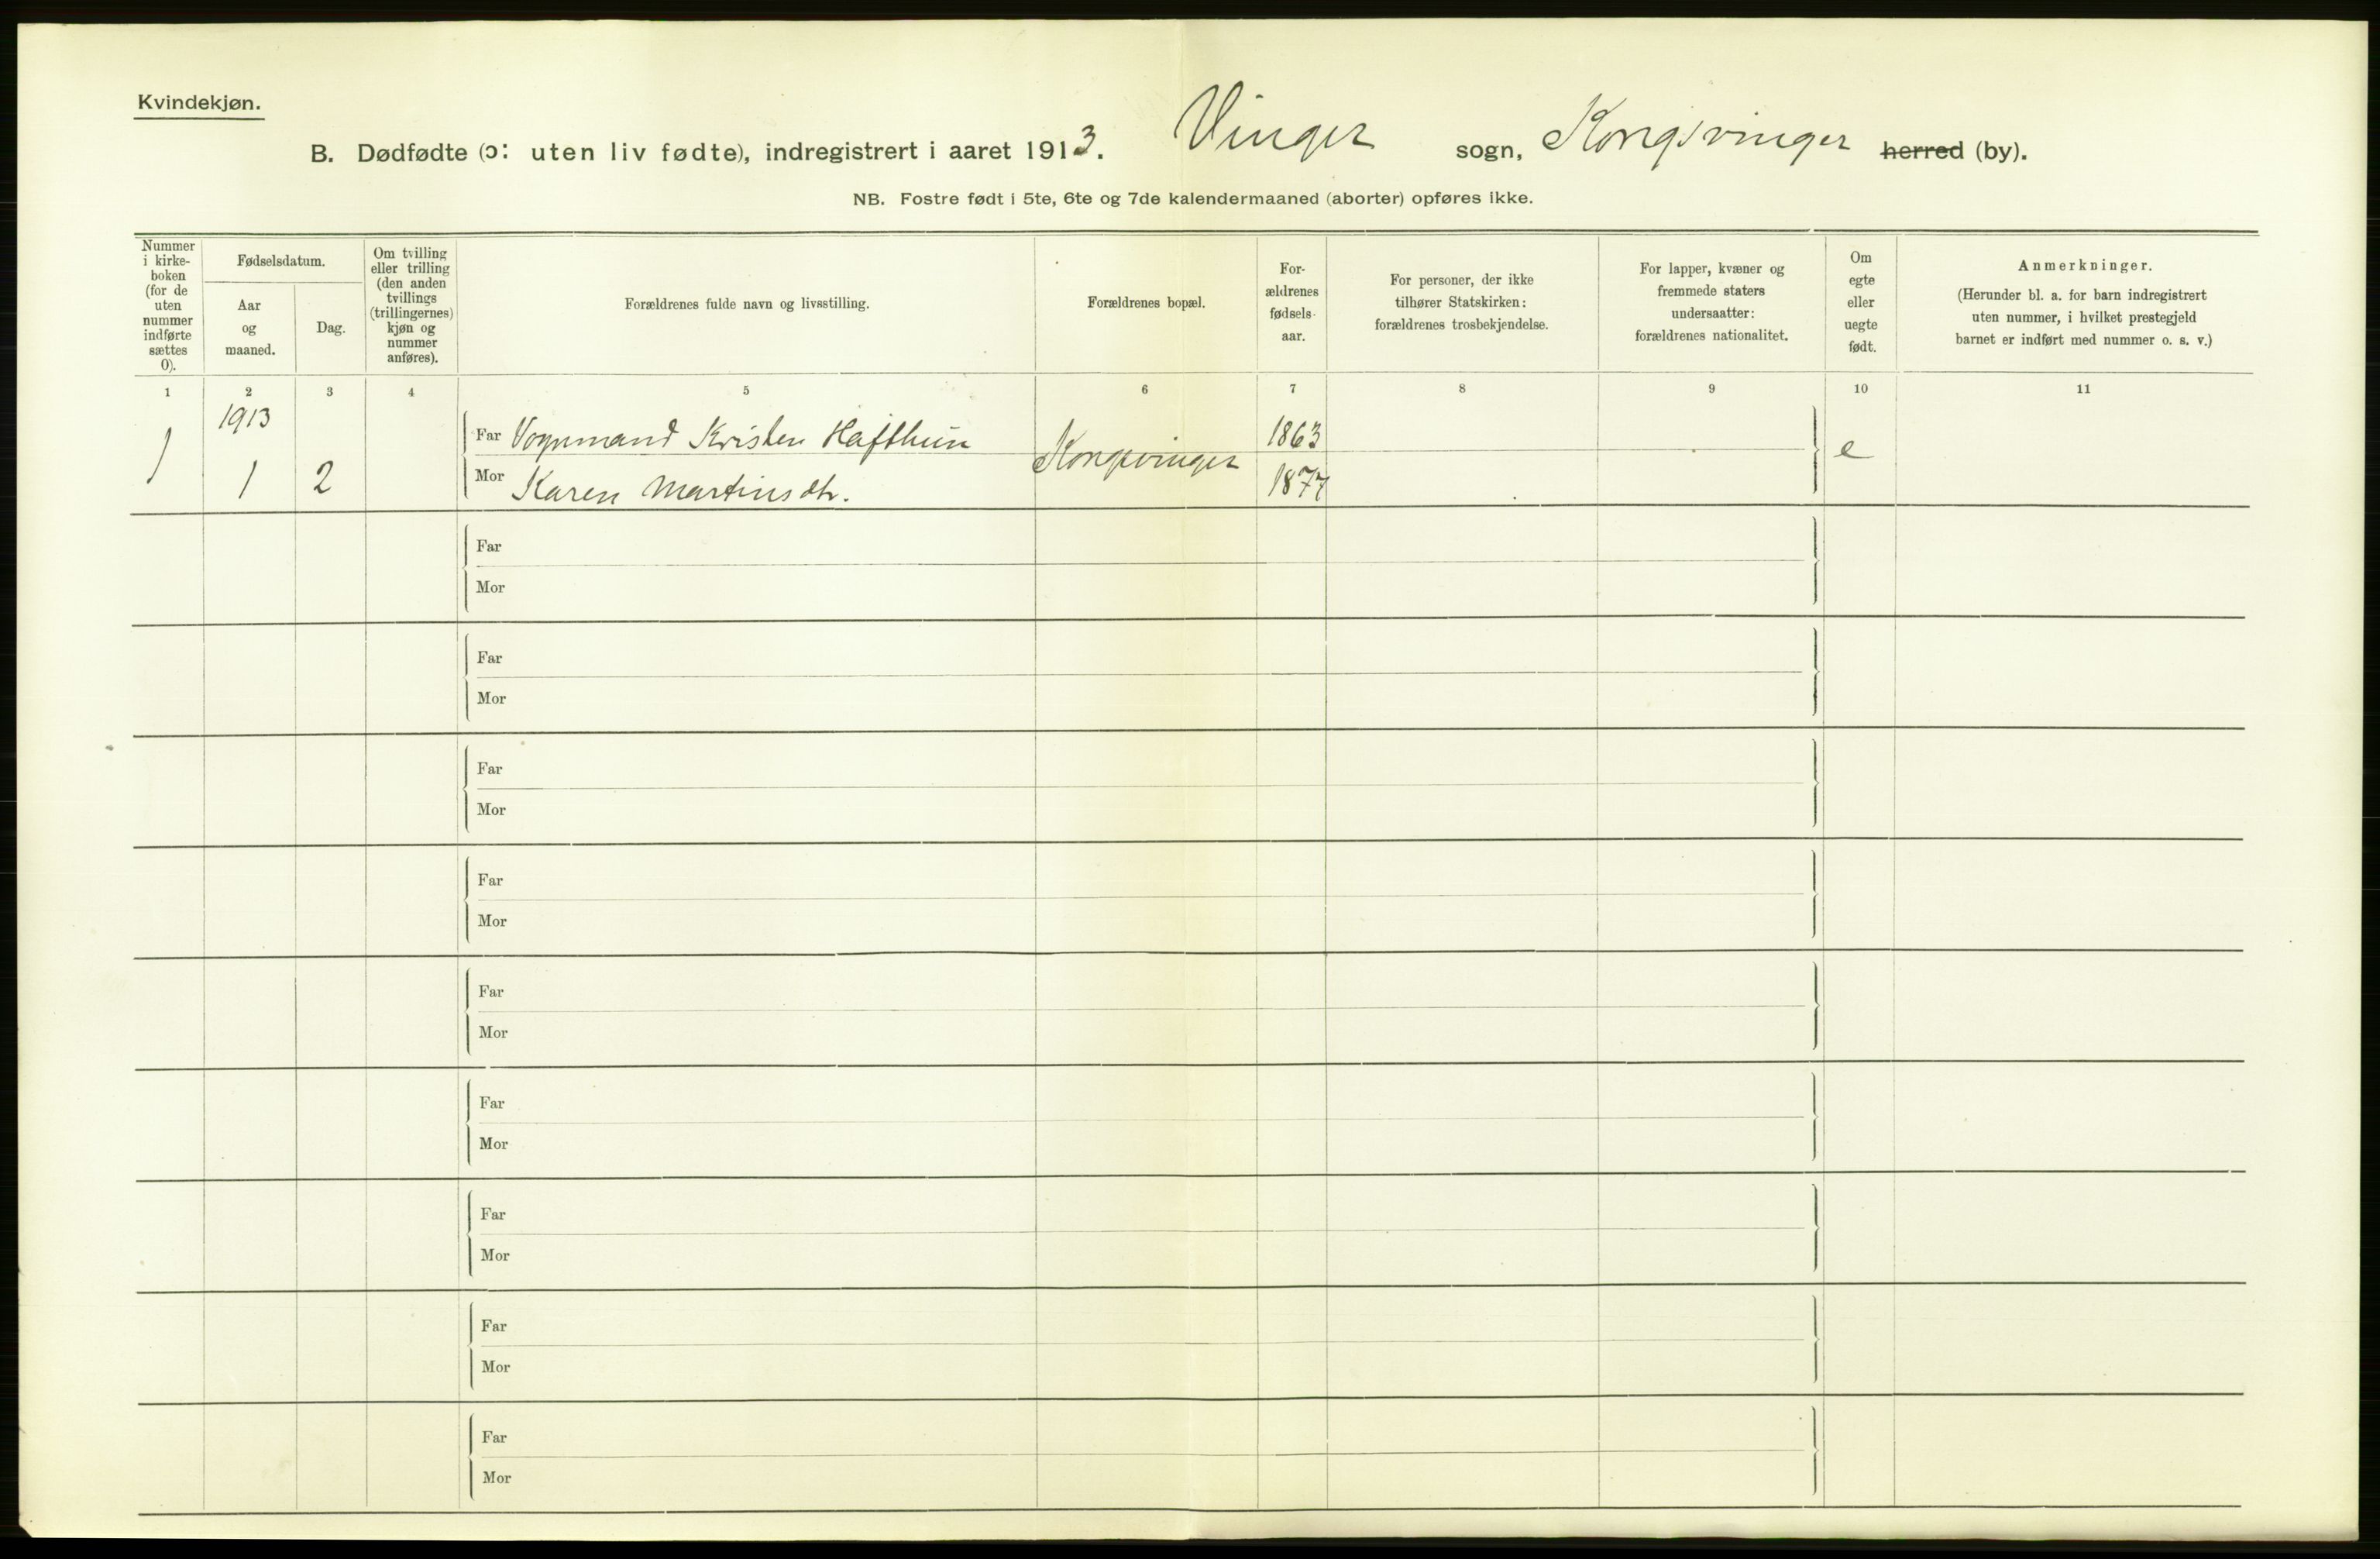 Kvindekjøn.
B. Dødfødte (ɔ: uten liv fødte), indregistrert i aaret 1913. Vinger sogn, Kongsvinger herred (by).
NB. Fostre født i 5te, 6te og 7de kalendermaaned (aborter) opføres ikke.
Nummer
i kirke-
boken
(for de
uten
nummer
indførte
sættes
0).
Fødselsdatum.
Aar
og
maaned.
Dag.
Om tvilling
eller trilling
(den anden
tvillings
(trillingernes)
kjøn og
nummer
anføres).
Forældrenes fulde navn og livsstilling.
Forældrenes bopæl.
For-
ældrenes
fødsels-
aar.
For personer, der ikke
tilhører Statskirken:
forældrenes trosbekjendelse.
For lapper, kvæner og
fremmede staters
undersaatter:
forældrenes nationalitet.
Om
egte
eller
uegte
født.
Anmerkninger.
(Herunder bl. a. for barn indregistrert
uten nummer, i hvilket prestegjeld
barnet er indført med nummer o. s. v.)
1 2 3 4 5 6 7 8 9 10 11
1913
1 1 2
Far Vognmand Kristen Hafthun
Mor Karen Martinsdtr.
Kongsvinger
1863
1877
e
Far
Mor
Far
Mor
Far
Mor
Far
Mor
Far
Mor
Far
Mor
Far
Mor
Far
Mor
Far
Mor